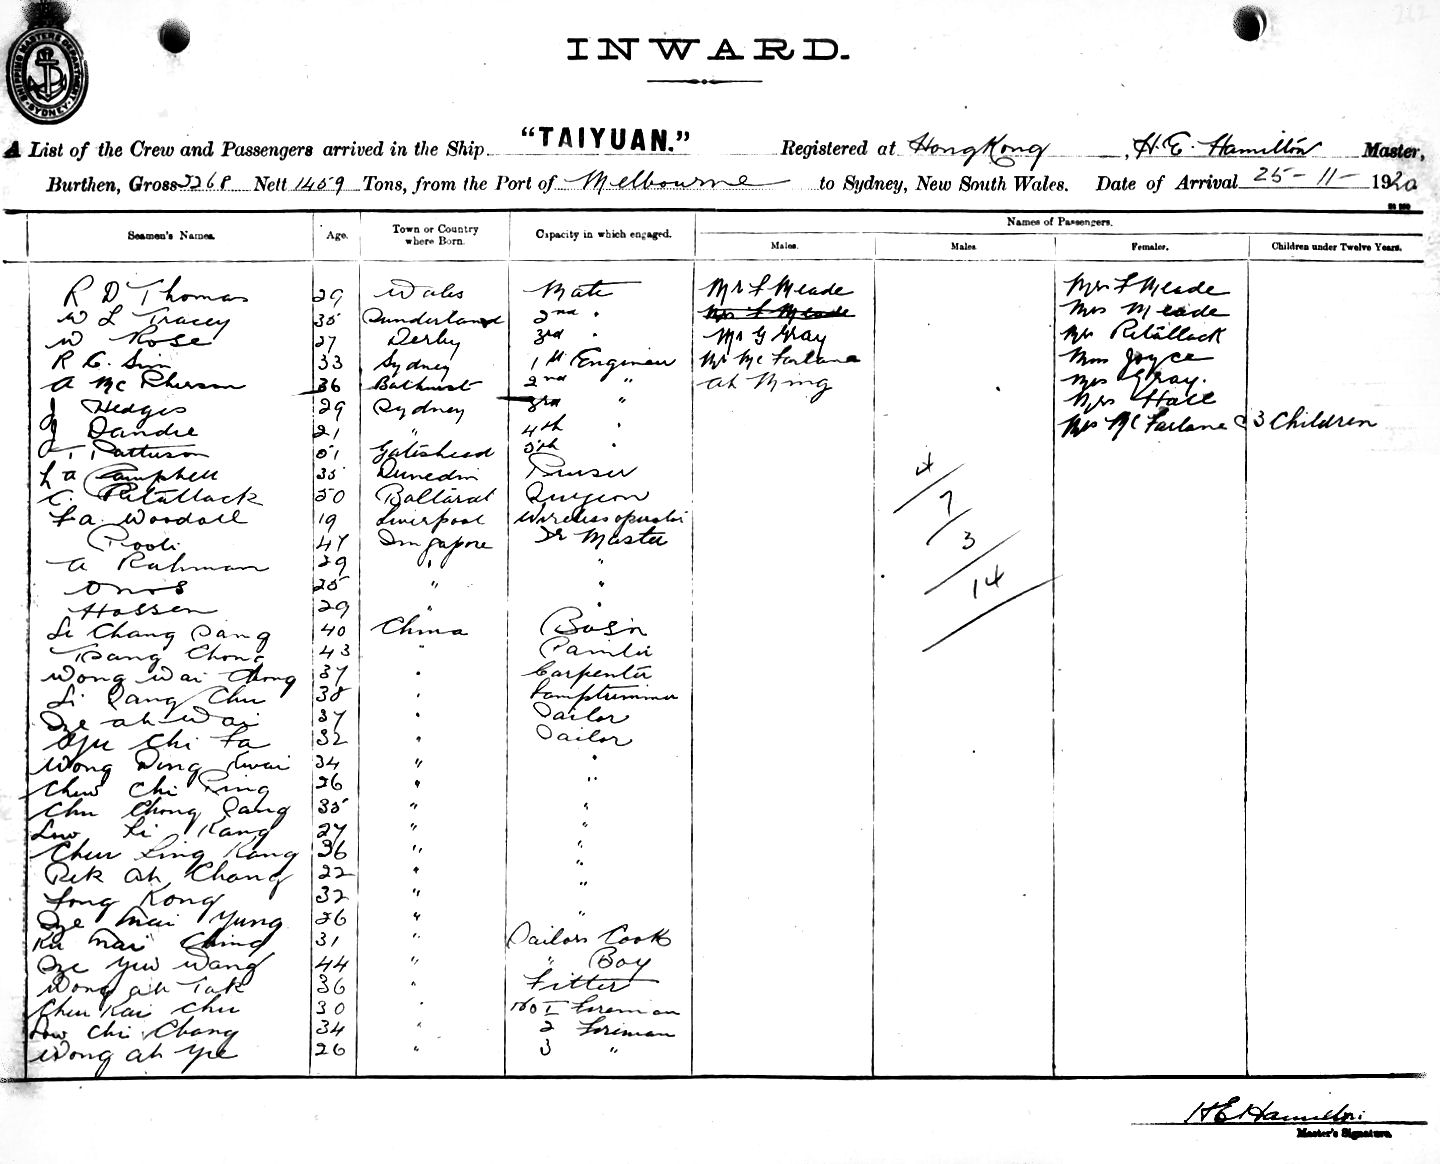 INWARD.
SHIPPING MASTERS DEPARTMENT SYDNEY
A List of the Crew and Passengers arrived in the Ship "TAIYUAN." Registered at Hong Kong, H. E. Hamilton Master,
Burthen, Gross 2268 Nett 1459 Tons, from the Port of Melbourne to Sydney, New South Wales. Date of Arrival 25-11-1920
Seamen's Names. Age. Town or Country where Born. Capacity in which engaged. Names of Passengers.
Males. Males. Females. Children under Twelve Years.
R D Thomas 29 Wales Mate Mr F Meade Mrs F Meade
W L Tracey 35 Sunderland 2nd " Mrs F Meade Mrs Meade
W Rose 27 Derby 3rd " Mr G Gray Mrs Retallack
R E. Sim 33 Sydney 1st Engineer Mr McFarlane Miss Joyce
A McPherson 36 Bathurst 2nd " Ah Ming Mrs Gray.
J Hedges 29 Sydney 3rd " Mrs Hall
J Dandie 21 " 4th " Mrs McFarlane & 3 Children
T Patterson 51 Gateshead 5th "
L A Campbell 35 Dunedin Purser 4
C. Retallack 50 Ballarat Surgeon 7
F A. Woodall 19 Liverpool Wireless operator
Pooli 47 Singapore Qr Master 3
A Rahman 29 " "
Onos 25 " " 14
Hassen 29 " "
Li Chang Sang 40 China Bos'n
Tsang Chong 43 " Painter
Wong Wai Chong 37 " Carpenter
Li Sang Chu 38 " Lamptrimmer
Sze Ah Wai 37 " Sailor
Chi Fa 32 " Sailor
Wong Kwai 34 " "
Chew Chi Ping 26 " "
Chu Chong Sang 35 " "
Low Li Kang 27 " "
Chew Ling Kang 36 " "
Pek Ah Chang 22 " "
Fong Kong 32 " "
Sze Mai Yung 26 " "
Ku Mai Ching 31 " Sailors Cook
Sze Yuw Wang 44 " " Boy
Wong Ah Tak 36 " Fitter
Chew Kai Chu 30 " No 1 Fireman
Low Chi Chang 34 " 2 Fireman
Wong Ah Yee 26 " 3 "
H E Hamilton
Master's Signature.